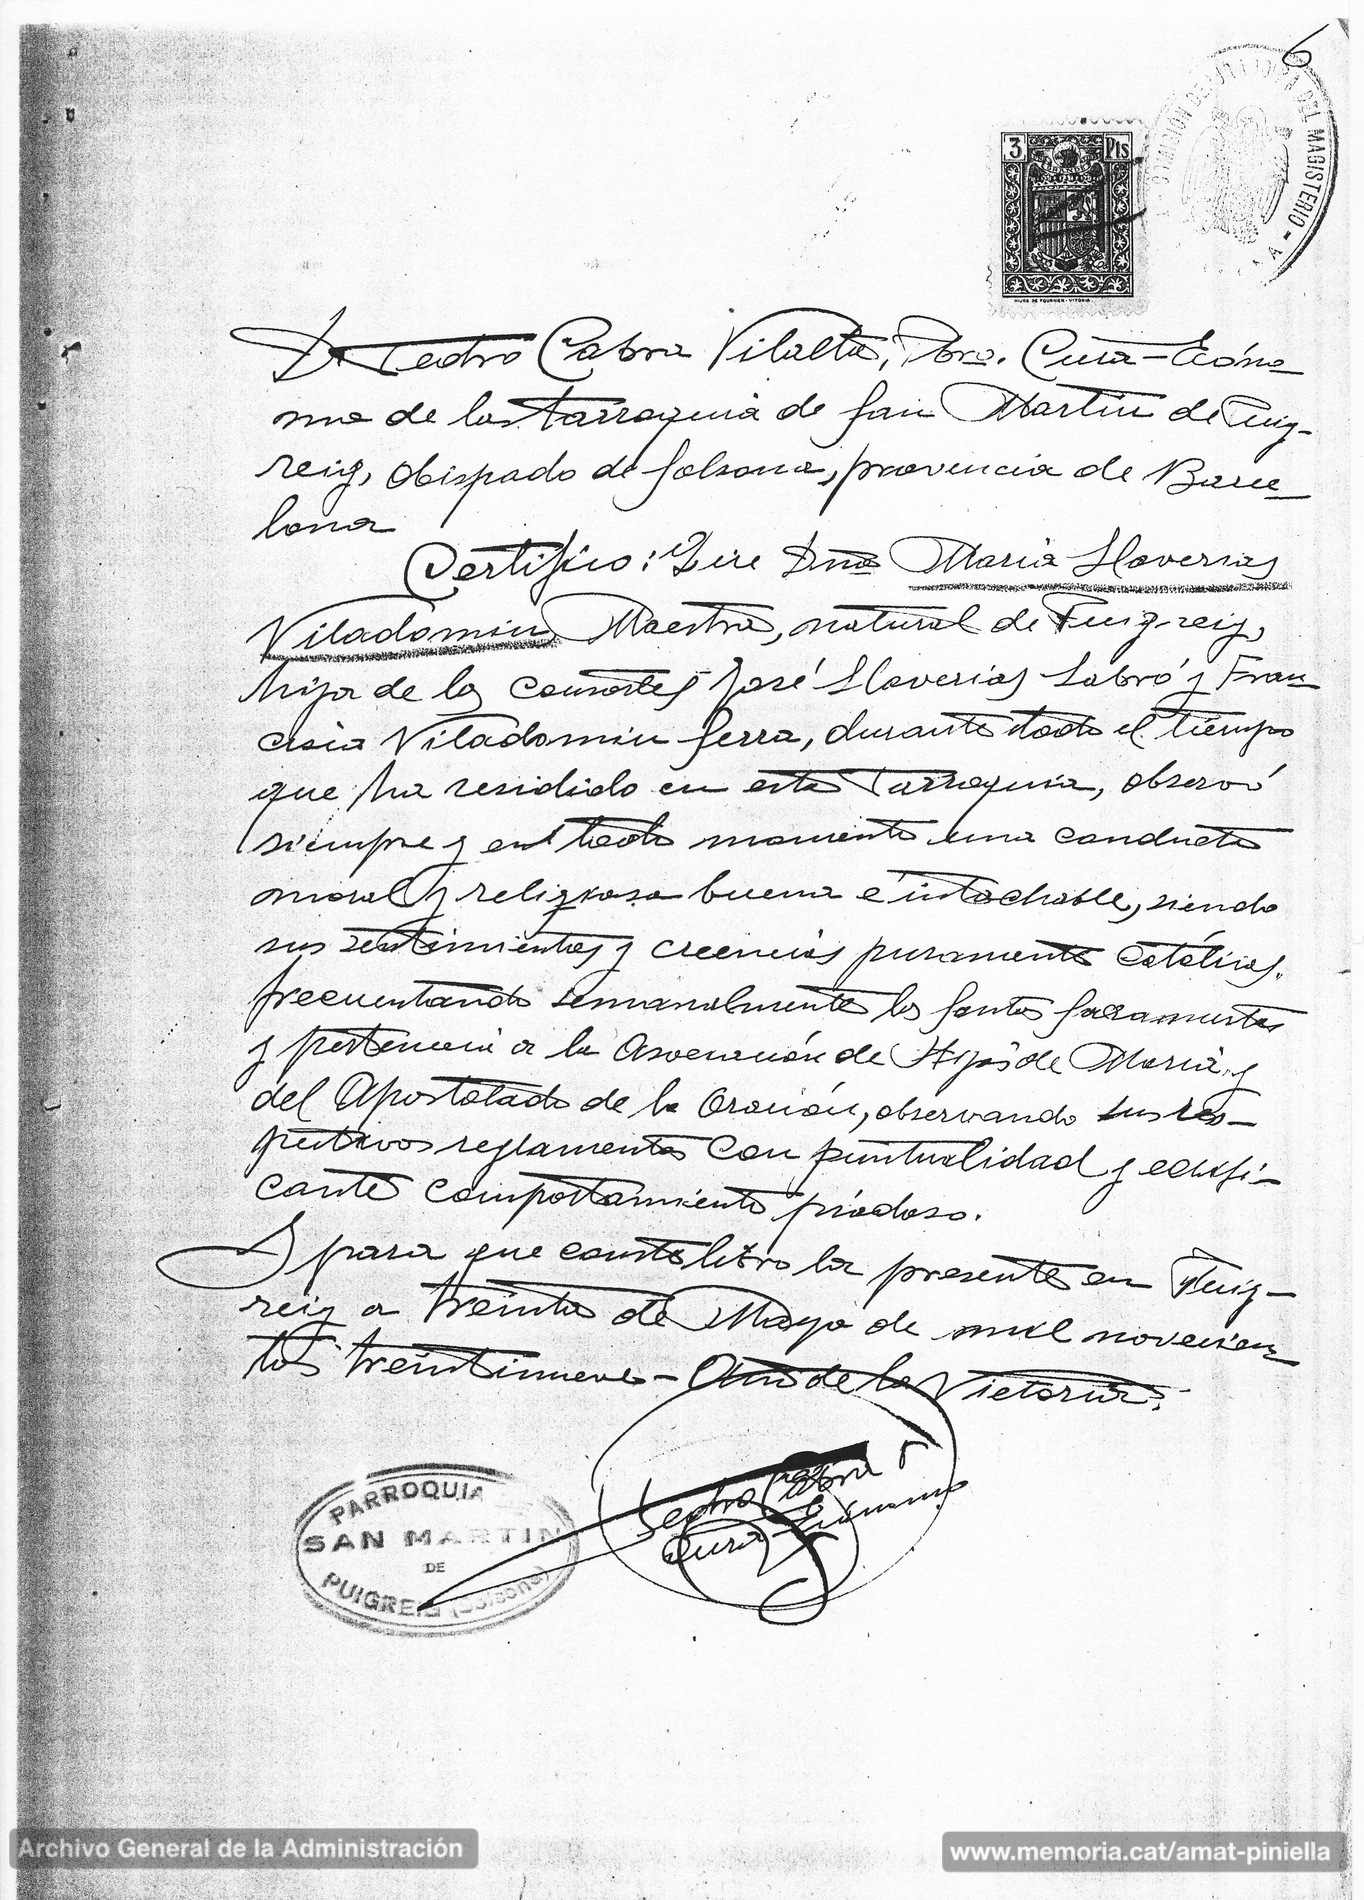 6
3 Pts
DEL MAGISTERIO
HIJOS DE FOURNIER - VITORIA
D. Pedro Cabra Vilalta, Pbro. Cura-Ecóno-
mo de la Parroquia de San Martin de Puig-
reig, Obispado de Solsona, provincia de Barce-
lona
Certifico: Que Dña Maria Llaverias
Viladomiu, Maestra, natural de Puigreig,
hija de los consortes José Llaverias Labró y Fran-
cisca Viladomiu Serra, durante todo el tiempo
que ha residido en esta Parroquia, observó
siempre y en todo momento una conducta
moral y religiosa buena é intachable, siendo
sus sentimientos y creencias puramente católicas,
frecuentando semanalmente los Santos Sacramentos
y pertenecia a la Asociación de Hijas de Maria, y
del Apostolado de la Oración, observando sus res-
pectivos reglamentos con puntualidad y edifi-
cante comportamiento piadoso.
Y para que conste libro la presente en Puig-
reig a treinta de Mayo de mil novecien-
tos treintinueve - Año de la Victoria.
Pedro Cabra
Cura-Ecónomo
PARROQUIA
SAN MARTIN
DE
PUIGREIG (Solsona)
Archivo General de la Administración
www.memoria.cat/amat-piniella